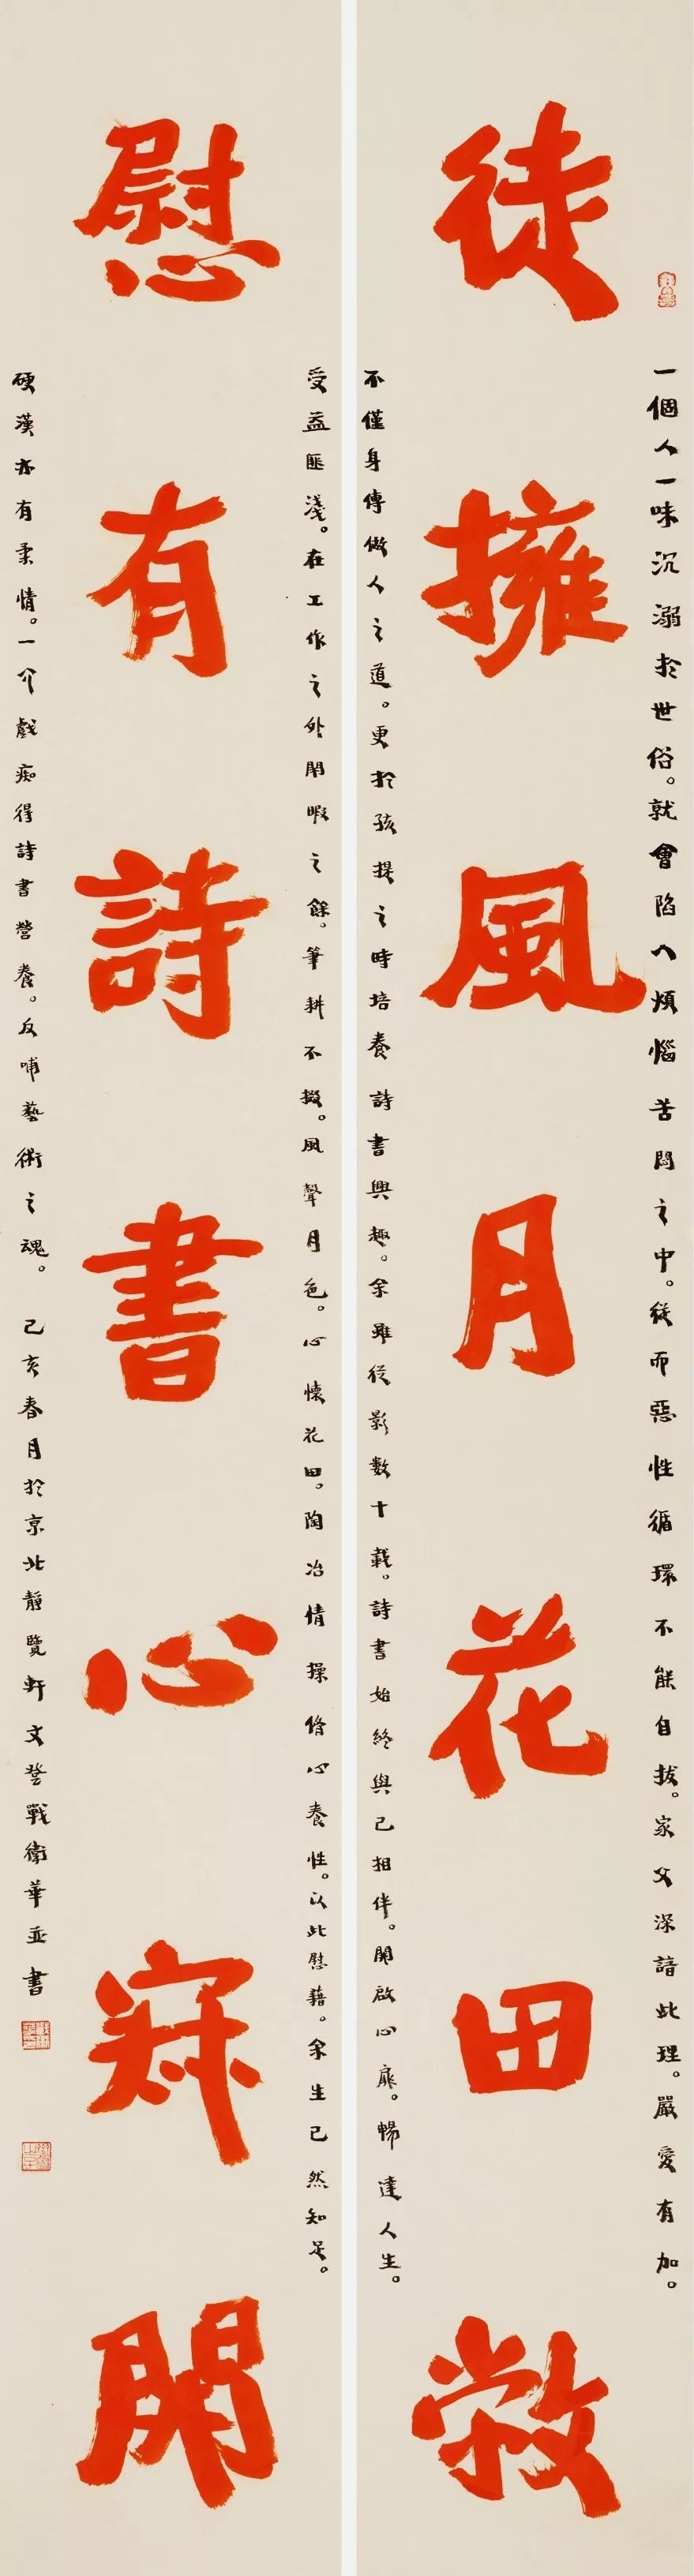 一個人一味沉溺於世俗。就會陷入煩惱苦悶之中。從而惡性循環不能自拔。家父深諳此理。嚴愛有加。
徒擁風月花田敞
不僅身傳做人之道。更於孩提之時培養詩書興趣。余雖從影數十載。詩書始終與己相伴。開啟心扉。暢達人生。
受益匪淺。在工作之外閑暇之餘。筆耕不輟。風聲月色。心懷花田。陶冶情操脩心養性。以此慰藉。余生已然知足。
慰有詩書心開
硬漢亦有柔情。一介戲痴得詩書營養。反哺藝術之魂。己亥春月於京北靜覽軒文登戰衛華並書